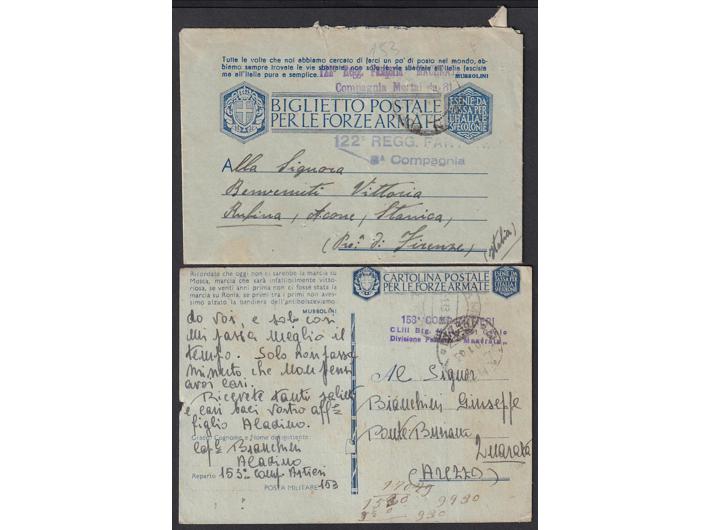 153
Tutte le volte che noi abbiamo cercato di farci un po' di posto nel mondo, ab-
biamo sempre trovate le vie sbarrate
me all'Italia pura e semplice.
MUSSOLINI
Compagnia Mortai da 81
BIGLIETTO POSTALE
PER LE FORZE ARMATE
ESENTE DA
TASSA PER
L'ITALIA E
SUE COLONIE
122° REGG. FANT
8ª Compagnia
Alla Signora
Benvenuti Vittoria
Rufina, Acone, Stanica,
(Pro.ª di Firenze)
(Italia)
Ricordate che oggi non ci sarebbe la marcia su
Mosca, marcia che sarà infallibilmente vitto-
riosa, se venti anni prima non ci fosse stata la
marcia su Roma, se primi tra i primi non aves-
simo alzato la bandiera dell'antibolscevismo.
MUSSOLINI
CARTOLINA POSTALE
PER LE FORZE ARMATE
153ª COMP.
CLIII Btg.
Divisione Macerata
do voi, e solo così
mi passa meglio il
tempo. Solo non passa
minuto che non pensi
a voi cari.
Ricevete tanti saluti
e cari baci vostro aff.º
figlio Aladino.
Grado Cognome e Nome del mittente
Bianchini
Aladino
Reparto 153ª Comp. Artieri
POSTA MILITARE 153
Al Signor
Bianchini Giuseppe
Ponte Buriano
Quarata
(AREZZO)